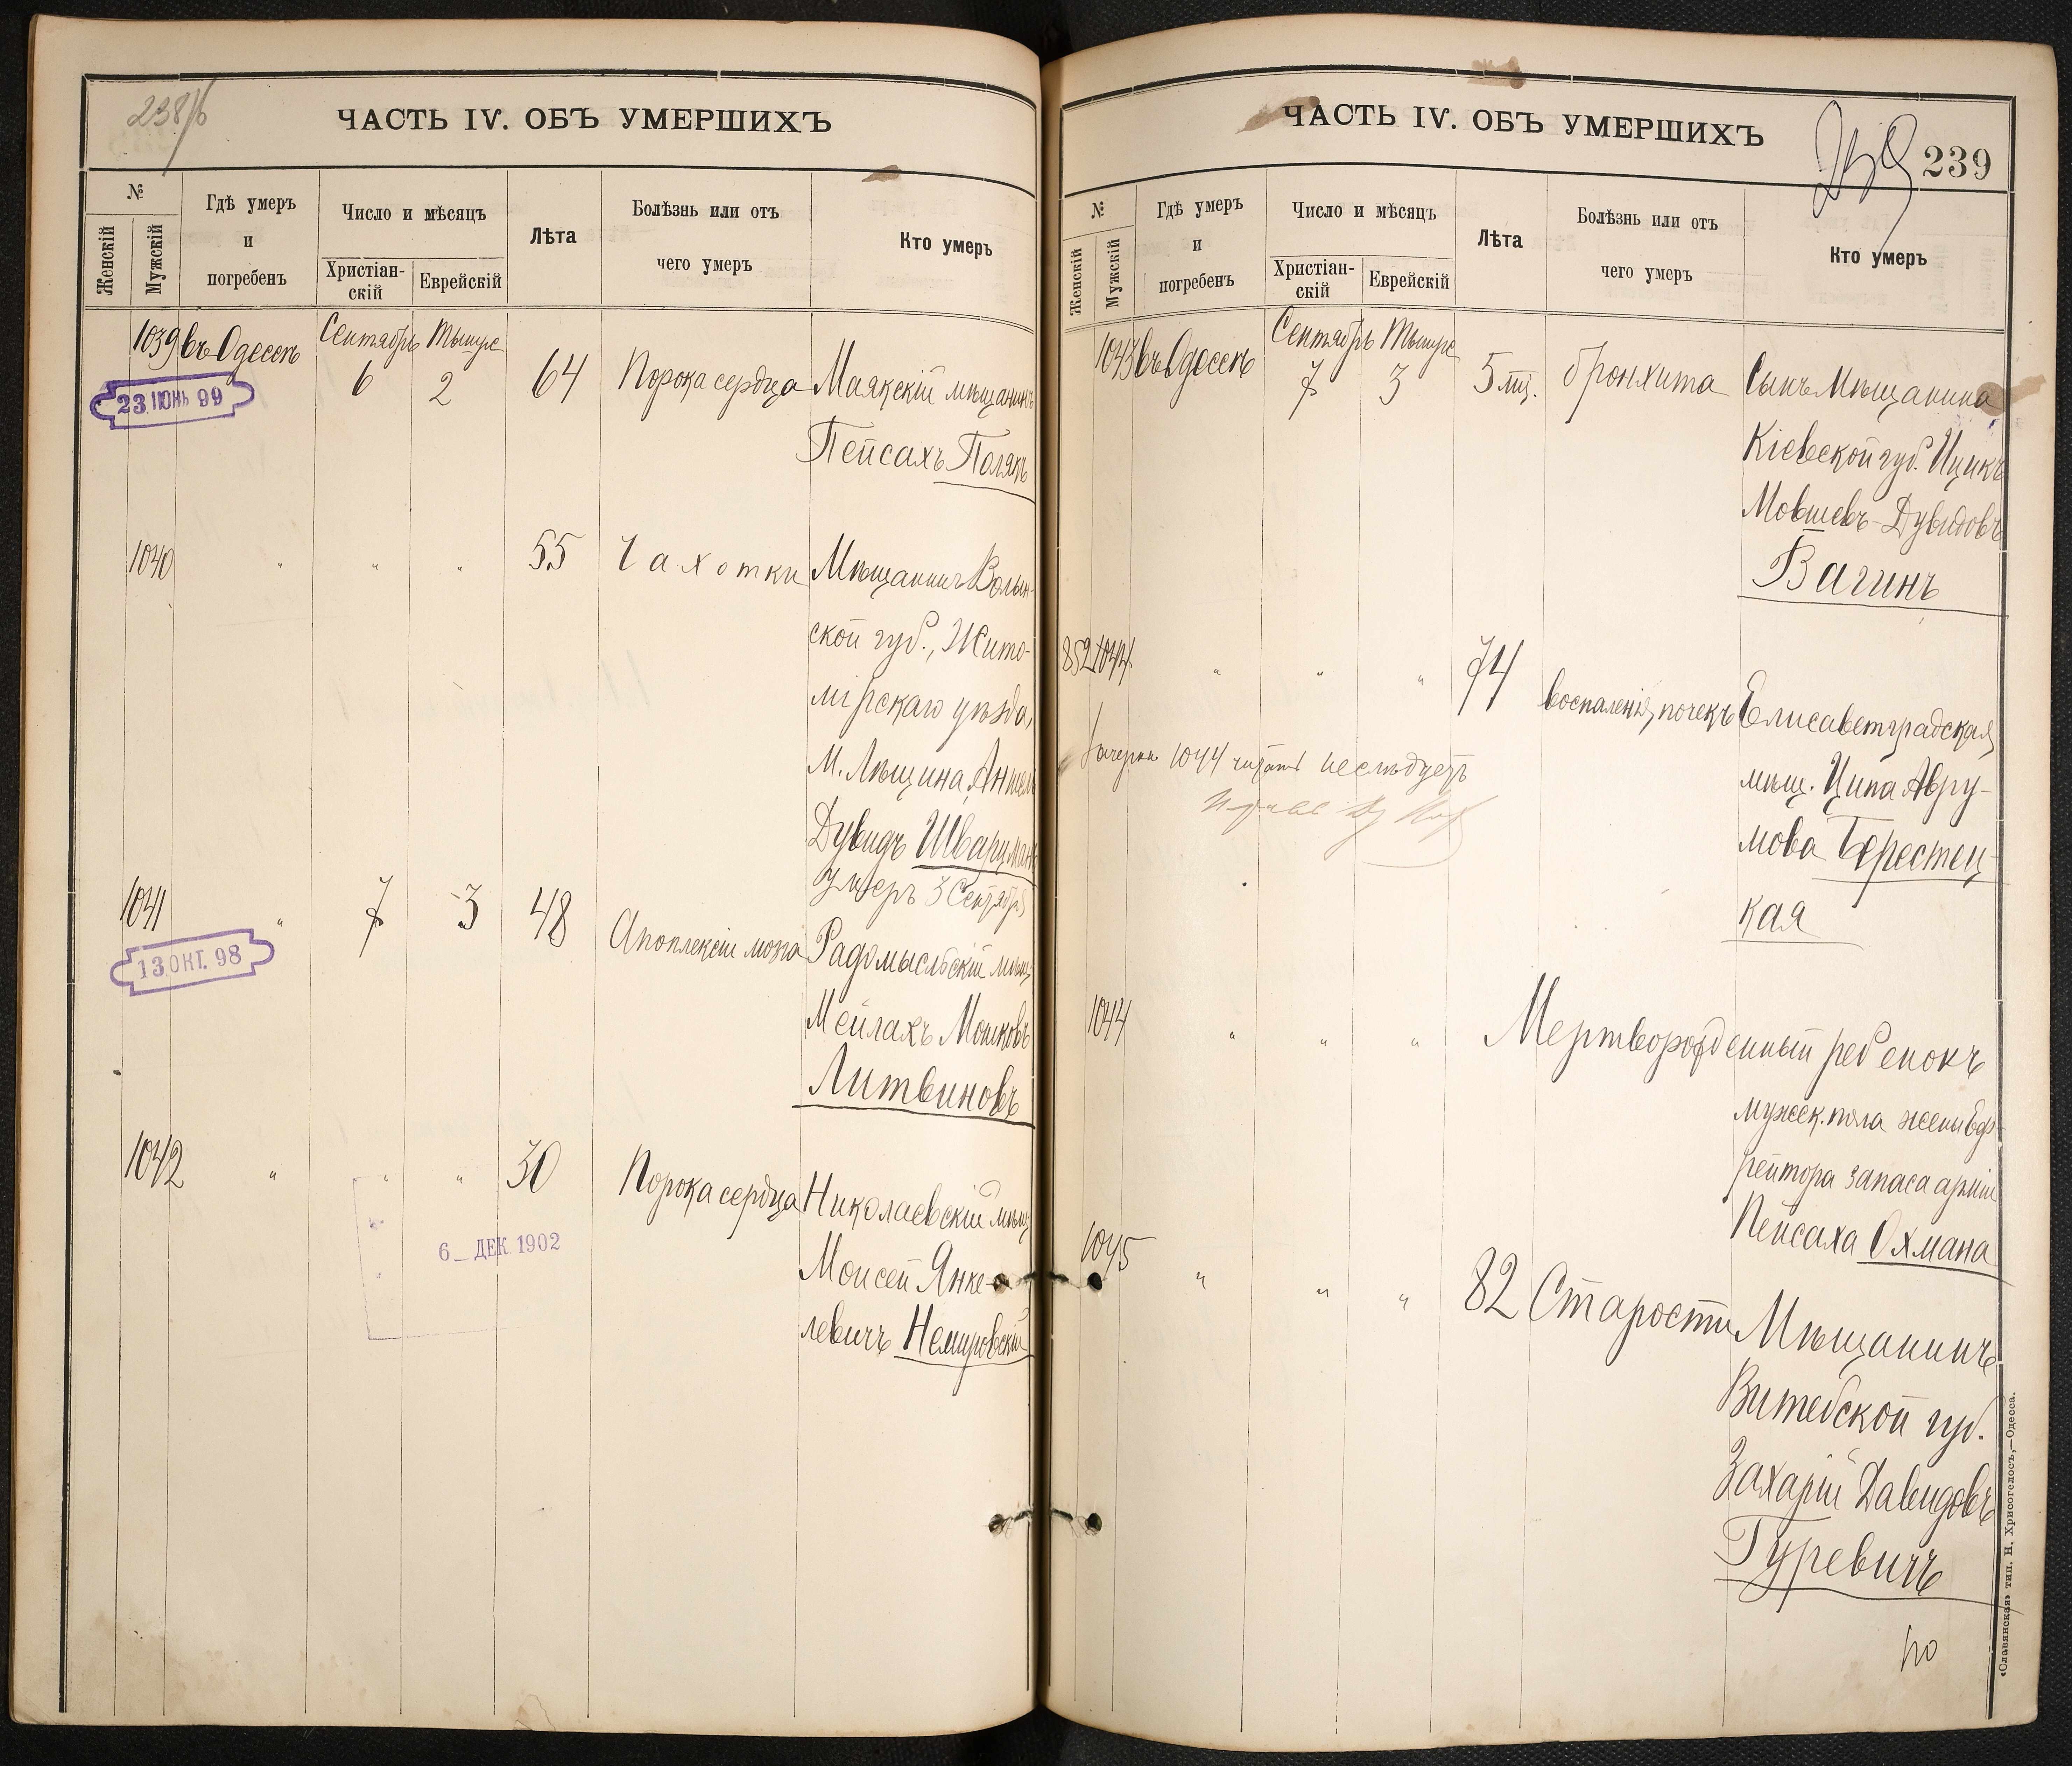 238/б
ЧАСТЬ IV. ОБЪ УМЕРШИХЪ
№
Женскій
Мужскій
Гдѣ умеръ
и
погребенъ
Число и мѣсяцъ
Христіан-
скій
Еврейскій
Лѣта
Болѣзнь или отъ
чего умеръ
Кто умеръ
1039 въ Одессѣ Сентябрь Тышре
6 2 64 Порока сердца Маякскій мѣщанинъ
23 ІЮНЬ 99
Пейсахъ Полякъ
1040 " " " 55 Чахотки Мѣщанинъ Волын-
ской губ., Жито-
мірскаго уѣзда,
М. Лѣщина,
Дувидъ Шварцманъ
умеръ 3 Сентября
1041 " 7 3 48 Апоплексіи мозга Радомысльскій мѣщ.
13 ОКТ. 98
Мейлахъ Мошковъ
Литвиновъ
1042 " " " 30 Порока сердца Николаевскій мѣщ.
6 _ ДЕК. 1902
Моисей Янке-
левичъ Немировскій
ЧАСТЬ IV. ОБЪ УМЕРШИХЪ
239
239
№
Женскій
Мужскій
Гдѣ умеръ
и
погребенъ
Число и мѣсяцъ
Христіан-
скій
Еврейскій
Лѣта
Болѣзнь или отъ
чего умеръ
Кто умеръ
1043 въ Одессѣ Сентябрь Тышре
7 3 5 мц. бронхита Сынъ Мѣщанина
Кіевской губ. Ицикъ
Мовшевъ-Дувидовъ
Вагинъ
852 1044 " " " 74 воспаленія почекъ Елисаветградская
мѣщ. Ципа Авру-
мова Берестец-
кая
1044 читать не слѣдуетъ
1044 " " " Мертворожденный ребенокъ
мужск. пола жены Еф-
рейтора запаса арміи
Пейсаха Охмана
1045 " " " 82 Старости Мѣщанинъ
Витебской губ.
Захарій Давидовъ
Гуревичъ
«Славянская» тип. Н. Хрисогелосъ,—Одесса.